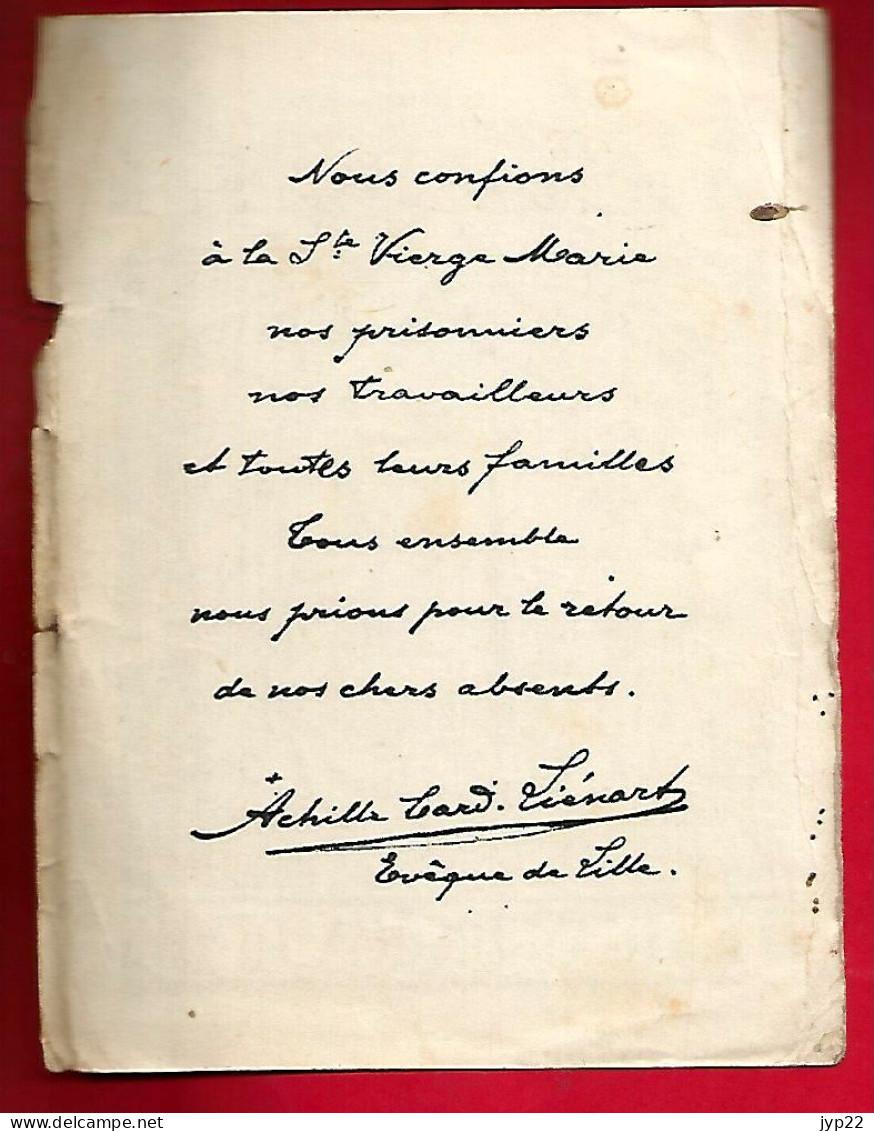 Nous confions
à la Ste Vierge Marie
nos prisonniers
nos travailleurs
et toutes leurs familles
Tous ensemble
nous prions pour le retour
de nos chers absents.
+ Achille Card. Liénart
Evêque de Lille.
www.delcampe.net
jyp22